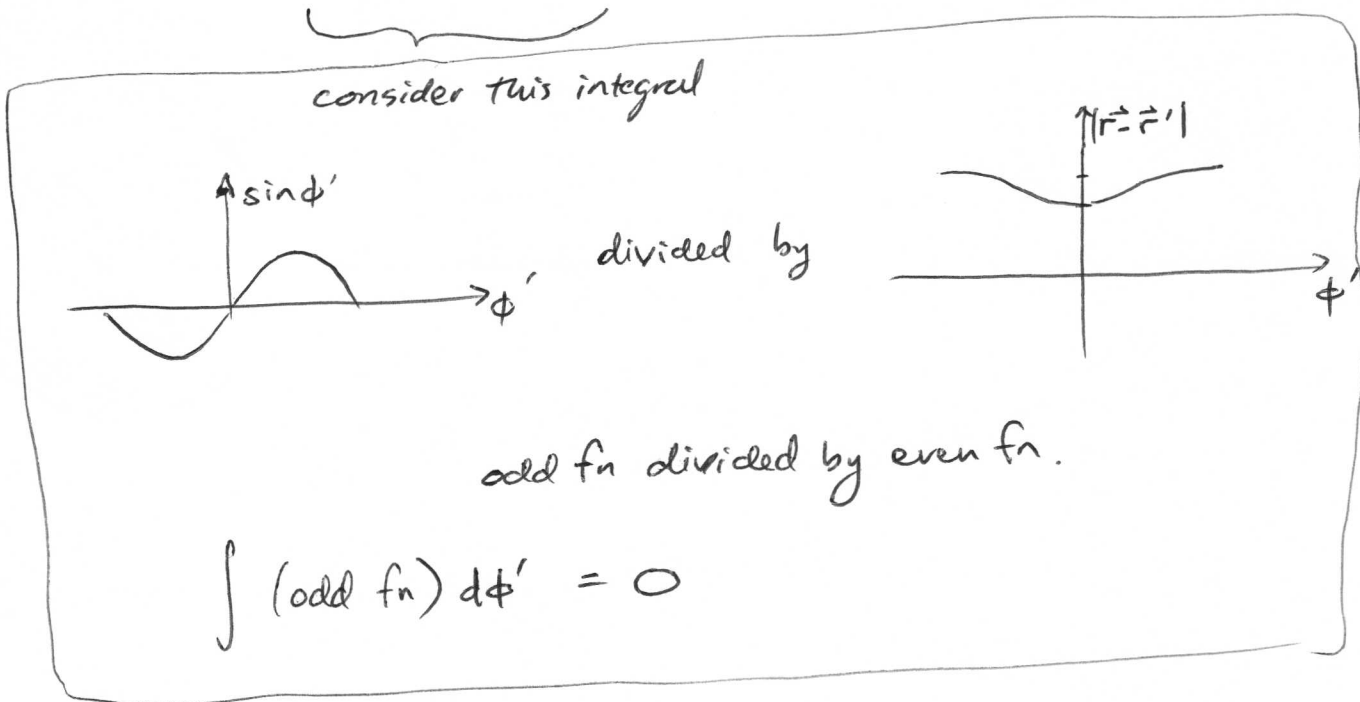 consider this integral
|r⃗-r⃗'|
sinϕ'
divided by
ϕ'
ϕ'
odd fn divided by even fn.
∫ (odd fn) dϕ' = 0